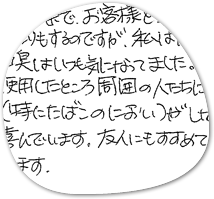 で、お客様と
りもするのですが、私は
臭はいつも気になってました。
使用したところ周囲の人たちに
(特にたばこのにおい)がした
喜んでいます。友人にもすすめて
ます。